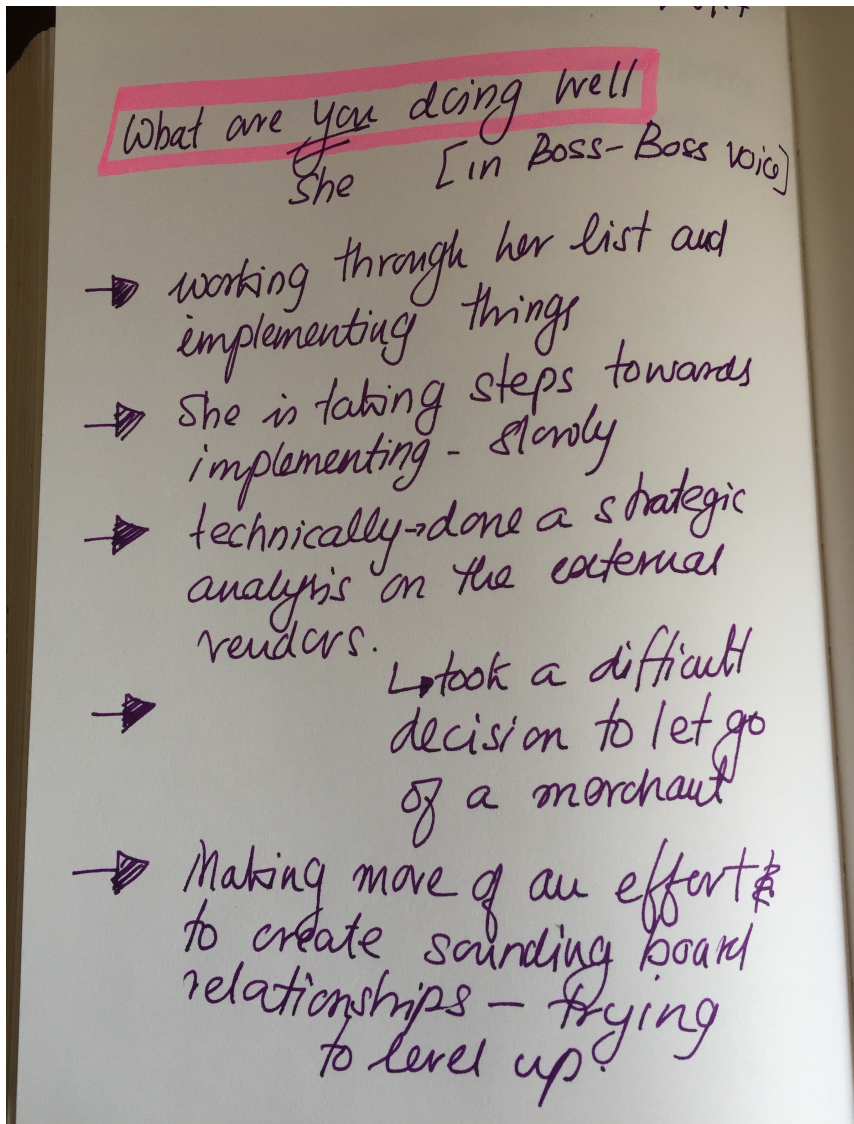 What are you doing well
She [in Boss-Boss voice]
→ working through her list and
implementing things
→ She is taking steps towards
implementing - slowly
→ technically → done a strategic
analysis on the external
vendors.
↳ took a difficult
→ decision to let go
of a merchant
→ Making more of an effort
to create sounding board
relationships — trying
to level up.